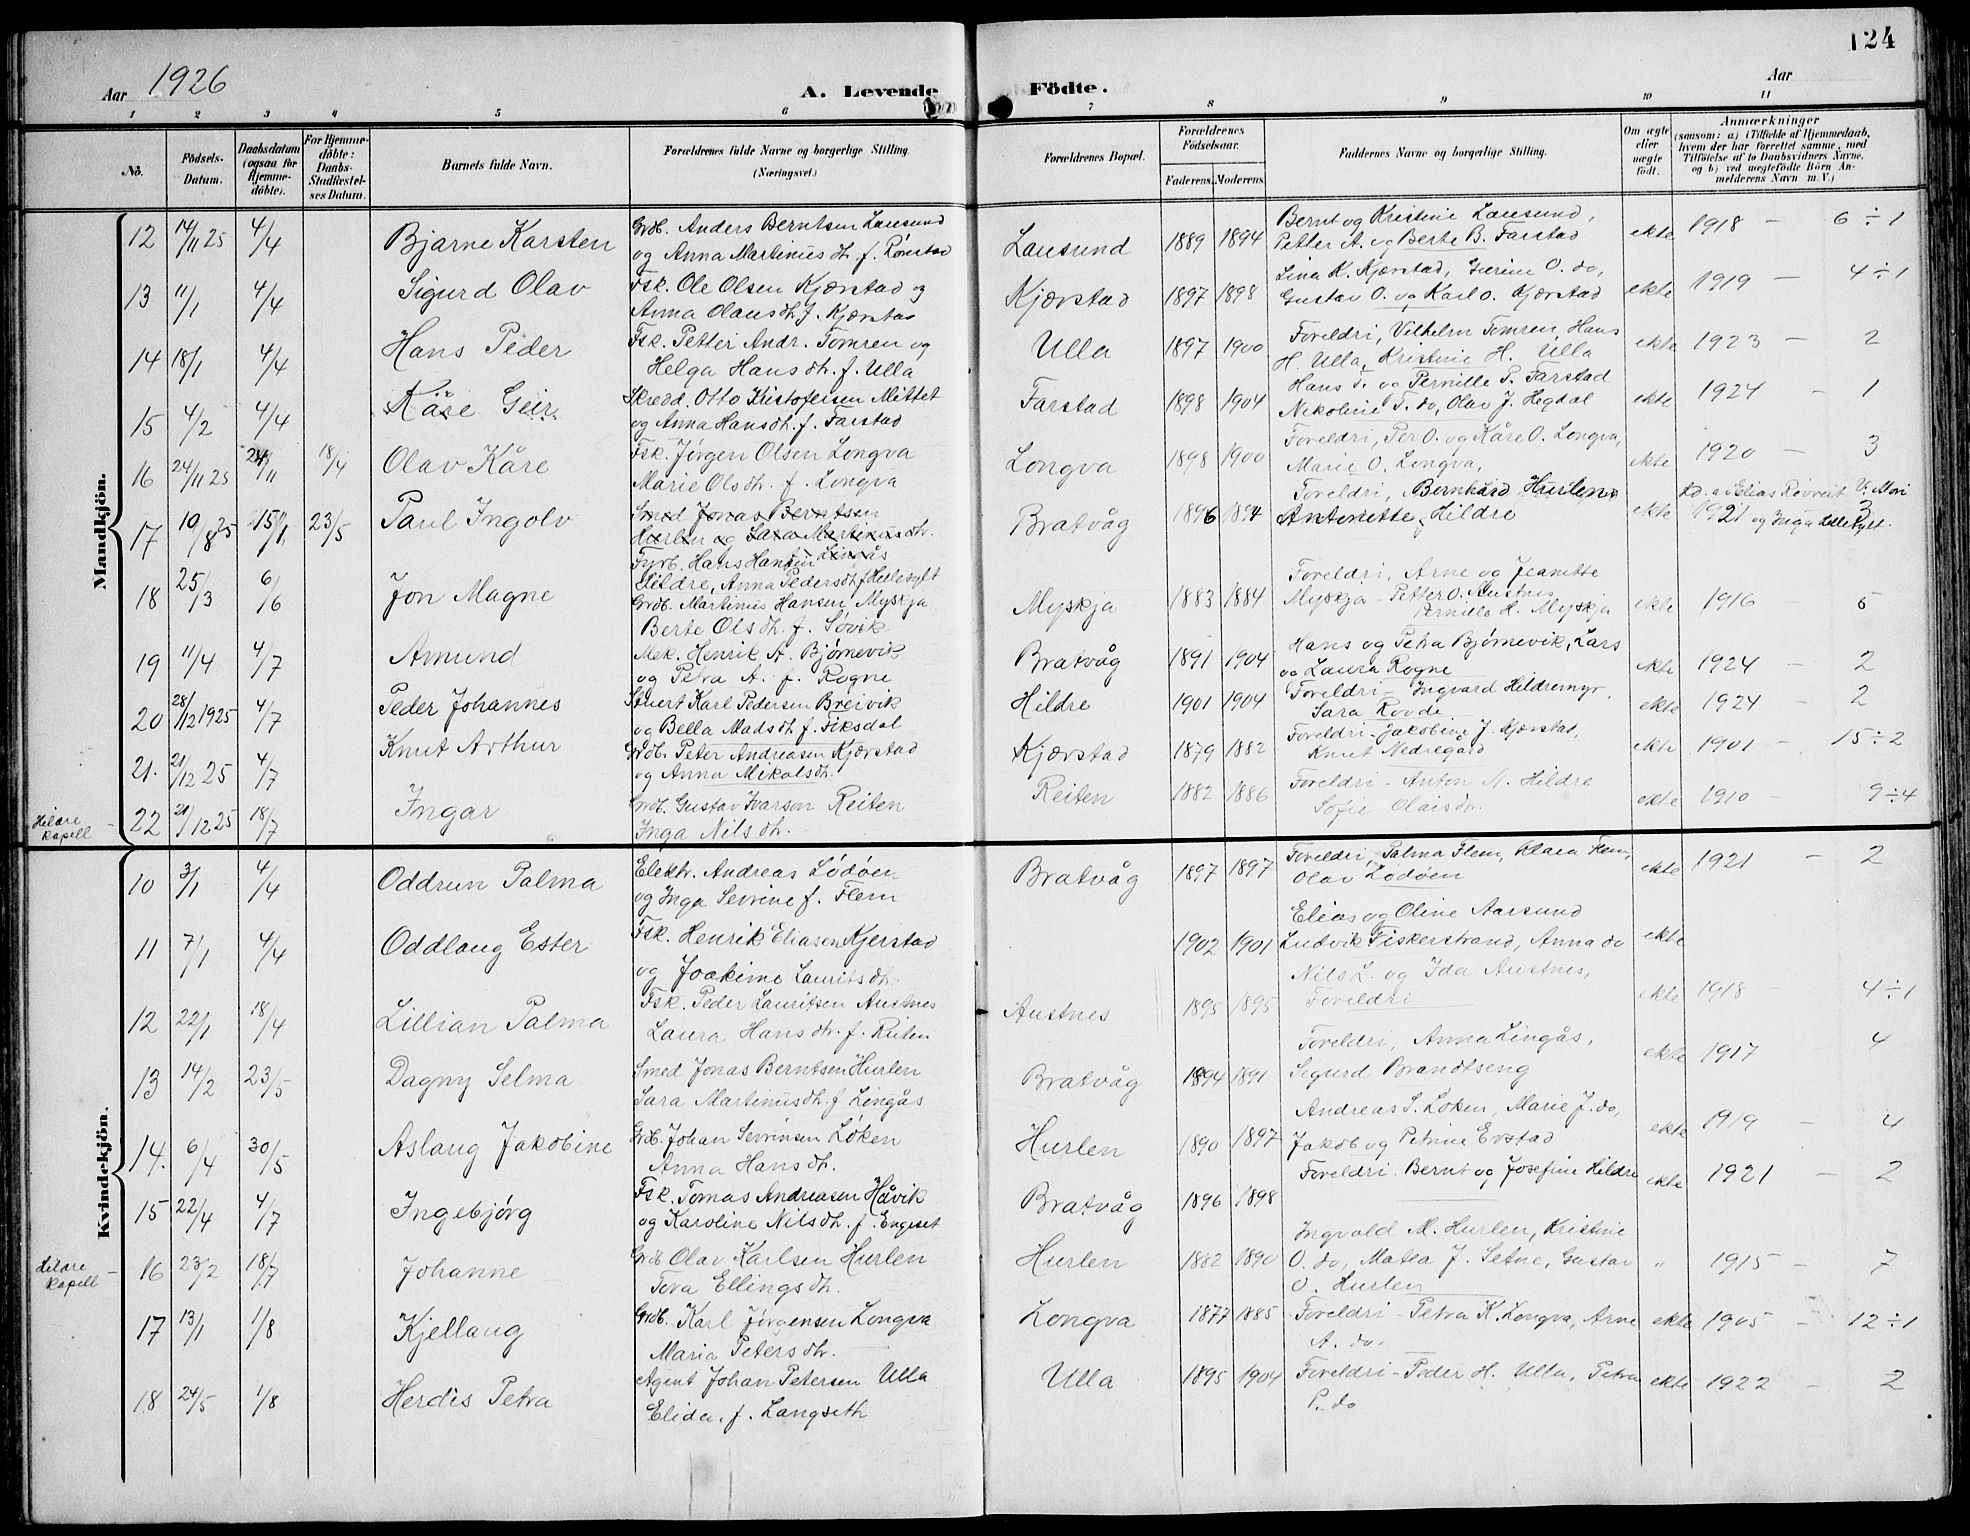 124
Aar 1926
A. Levende
Födte.
Aar
1 2 3 4 5 6 7 8 9 10 11
No.
Födsels-Datum.
Daabsdatum (ogsaa for Hjemmedöbte).
For Hjemmedöbte: Daabs-Stadfæstelses Datum.
Barnets fulde Navn.
Forældrenes fulde Navne og borgerlige Stilling (Næringsvei.)
Forældrenes Bopæl.
Forældrenes Födselsaar.
Faderens. Moderens.
Faddernes Navne og borgerlige Stilling.
Om ægte eller uægte födt.
Anmærkninger
(saasom: a) i Tilfælde af Hjemmedaab, hvem der har forrettet samme, med Tilföielse af to Daabsvidners Navne, og b) ved uegtefödte Börn Anmelderens Navn m. V.)
Mandkjön.
12 14/11 25 4/4 Bjarne Karsten Grdb. Anders Berntsen Lausund
og Anna Martinus dtr. f. Rønstad Lausund 1889 1894 Bernt og Kristine Lausund,
Petter A. og Berte B. Farstad ekte 1918 – 6 ÷ 1
13 11/1 4/4 Sigurd Olav Fsk. Ole Olsen Kjærstad og
Anna Olausdtr. f. Kjærstad Kjærstad 1897 1898 Lina K. Kjærstad, Gurine O. do,
Gustav O. og Karl O. Kjærstad ekte 1919 – 4 ÷ 1
14 18/1 4/4 Hans Peder Fsk. Petter Andr. Tomren og
Helga Hansdtr. f. Ulla Ulla 1897 1900 Foreldri, Vilhelm Tomren, Hans
H. Ulla, Kristine H. Ulla ekte 1923 – 2
15 4/2 4/4 Kåre Geir Skredd. Otto Kristofersen Mittet
og Anna Hansdtr. f. Farstad Farstad 1898 1904 Hans T. og Pernille P. Farstad
Nikoline T. do, Olav J. Hegdal ekte 1924 – 1
16 24/11 25 24/11 18/4 Olav Kåre Fsk. Jørgen Olsen Longva
Marie Olsdtr. f. Longva Longva 1898 1900 Foreldri, Per O. og Kåre O. Longva,
Marie O. Longva, ekte 1920 – 3
17 10/8 25 15/1 23/5 Paul Ingolv Smed Jonas Berntsen
Hurlen og Sara Martinusdtr.
f. Lingås
Fyrb. Hans Hansen
Hildre, Anna Pedersdtr. f. Hellesylt Bratvåg 1896 1894 Foreldri, Bernhard Hurlen,
Antonette Hildre ekte 1921 og Inga Hellesylt. 3
18 25/3 6/6 Jon Magne Grdb. Martinus Hansen Myskja
Berte Olsdtr. f. Søvik Myskja 1883 1884 Foreldri, Arne og Jeanette
Myskja – Petter O. Austnes
Pernille H. Myskja ekte 1916 5
19 11/4 4/7 Amund Mek. Henrik A. Bjørnevik
og Petra A. f. Rogne Bratvåg 1891 1904 Hans og Petra Bjørnevik, Lars
og Laura Rogne ekte 1924 – 2
20 28/12 1925 4/7 Peder Johannes Stuert Karl Pedersen Breivik
og Bella Madsdtr. f. Fiksdal Hildre 1901 1904 Foreldri – Ingvard Hildremyr,
Sara Rovde ekte 1924 – 2
21. 21/12 25 4/7 Knut Arthur Grdb. Peter Andreasen Kjærstad
og Anna Mikalsdtr. Kjærstad 1879 1882 Foreldri – Jakobine J. Kjærstad,
Knut Nedregård ekte 1901 – 15 ÷ 2
Hildre kapell – 22 21/12 25 18/7 Ingar Grdb. Gustav Ivarson Reiten
Inga Nilsdtr. Reiten 1882 1886 Foreldri – Anton N. Hildre
Sofie Olaisdtr. ekte 1910 – 9 ÷ 4
Kvindekjön.
10 3/1 4/4 Oddrun Palma Elektr. Andreas Lødøen
og Inga Sevrine f. Flem Bratvåg 1897 1897 Foreldri, Palma Flem, Klara Flem,
Olav Lødøen ekte 1921 – 2
11 7/1 4/4 Oddlaug Ester Fsk. Henrik Eliasen Kjerstad
og Joakime Lauritsdtr. 1902 1901 Elias og Oline Aarsund
Ludvik Fiskerstrand, Anna do ekte
12 22/1 18/4 Lillian Palma Fsk. Peder Lauritsen Austnes
Laura Hansdtr. f. Reiten Austnes 1895 1895 Nils L. og Ida Austnes,
Foreldri ekte 1918 – 4 ÷ 1
13 14/2 23/5 Dagny Selma Smed Jonas Berntsen Hurlen
Sara Martinusdtr. f. Lingås Bratvåg 1894 1891 Foreldri, Anna Lingås,
Sigurd Brandtseng ekte 1917 4
14. 6/4 30/5 Aslaug Jakobine Grdb. Johan Sevrinsen Løken
Anna Hansdtr. Hurlen 1890 1897 Andreas S. Løken, Marie J. do,
Jakob og Petrine Evstad ekte 1919 – 4
15 22/4 4/7 Ingebjørg Fsk. Tomas Andreasen Håvik
og Karoline Nilsdtr. f. Engeset Bratvåg 1896 1898 Foreldri. Bernt og Josefine Hildre ekte 1921 – 2
Hildre kapell – 16 23/2 18/7 Johanne Grdb Olav Karlsen Hurlen
Tora Ellingsdtr. Hurlen 1882 1890 Ingvald M. Hurlen, Kristine
O. do, Matea J. Setne, Gustav
O. Hurlen " 1915 – 7
17 13/1 1/8 Kjellaug Grdb. Karl Jørgensen Longva
Maria Petersdtr. Longva 1877 1885 Foreldri – Petra K. Longva, Arne
A. do. ekte 1905 – 12 ÷ 1
18 24/5 1/8 Herdis Petra Agent Johan Petersen Ulla
Elida f. Langseth Ulla 1895 1904 Foreldri – Peder H. Ulla, Petra
P. do ekte 1922 – 2